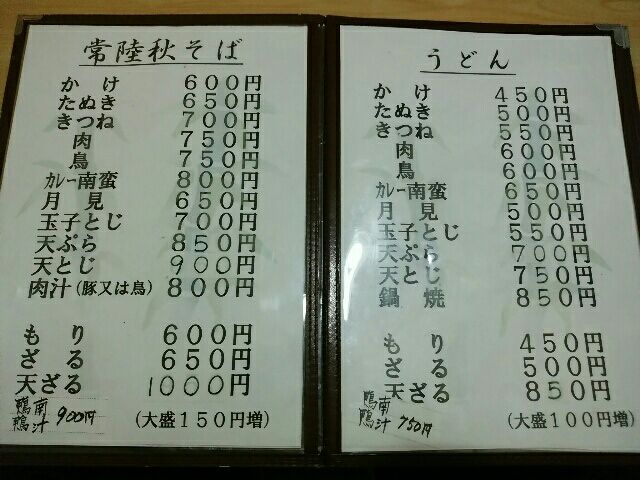 常陸秋そば
かけ 600円
たぬき 650円
きつね 700円
肉 750円
鳥 750円
カレー南蛮 800円
月見 650円
玉子とじ 700円
天ぷら 850円
天とじ 900円
肉汁(豚又は鳥) 800円
もり 600円
ざる 650円
天ざる 1000円
鴨南
鴨汁 900円
(大盛150円増)
うどん
かけ 450円
たぬき 500円
きつね 550円
肉 600円
鳥 600円
カレー南蛮 650円
月見 500円
玉子とじ 550円
天ぷら 700円
天とじ 750円
鍋焼 850円
もり 450円
ざる 500円
天ざる 850円
鴨南
鴨汁 750円
(大盛100円増)